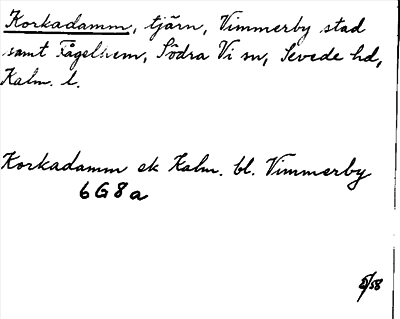 Korkadamm, tjärn, Vimmerby stad
samt Fågelhem, Södra Vi sn, Sevede hd,
Kalm. l.
Korkadamm ek Kalm. bl. Vimmerby
6G8a
/58